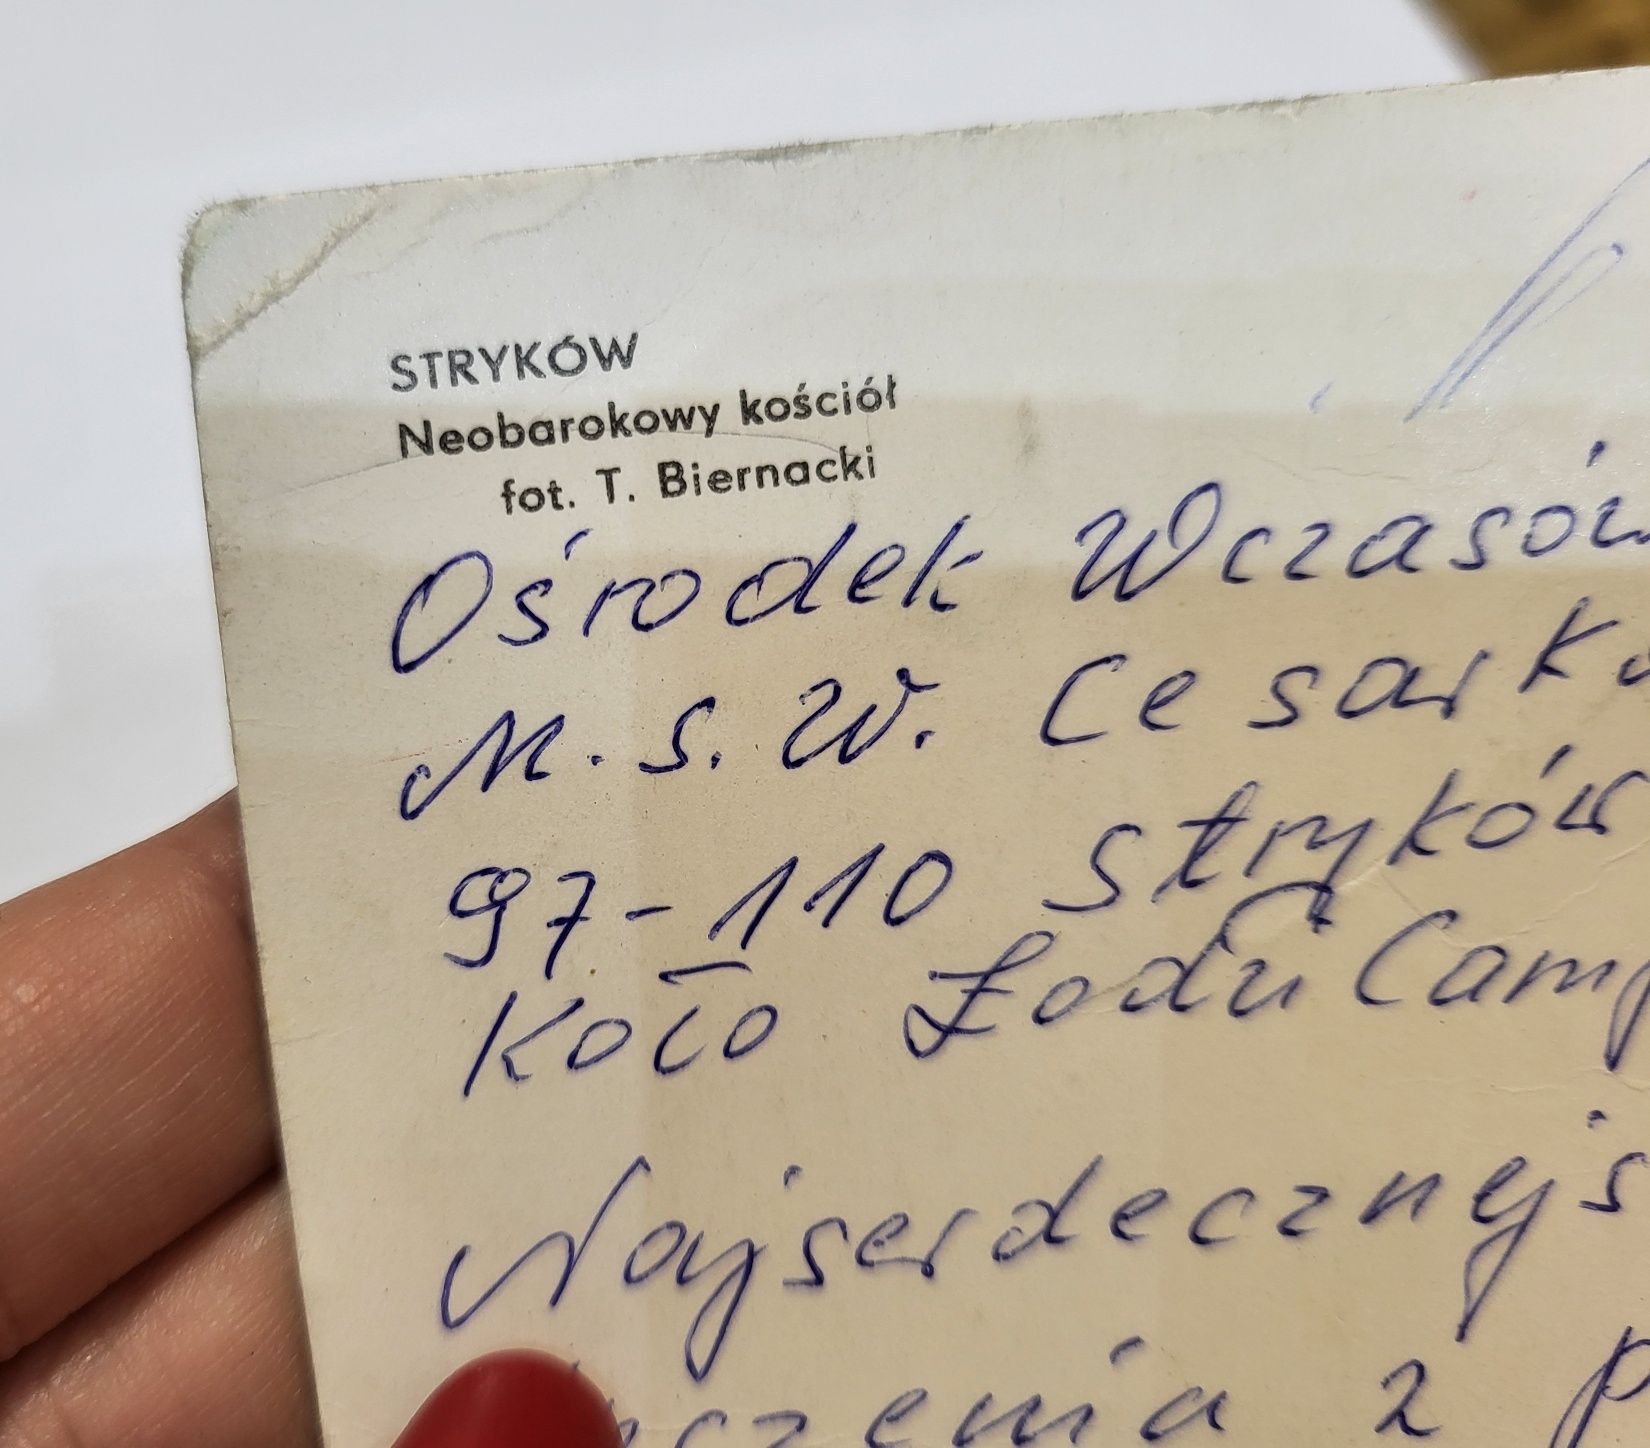 STRYKÓW
Neobarokowy kościół
fot. T. Biernacki
Ośrodek Wczasów
M. S. W. Cesarka
97-110 Stryków
Koło Łodzi Camp
Najserdecznejs
z p